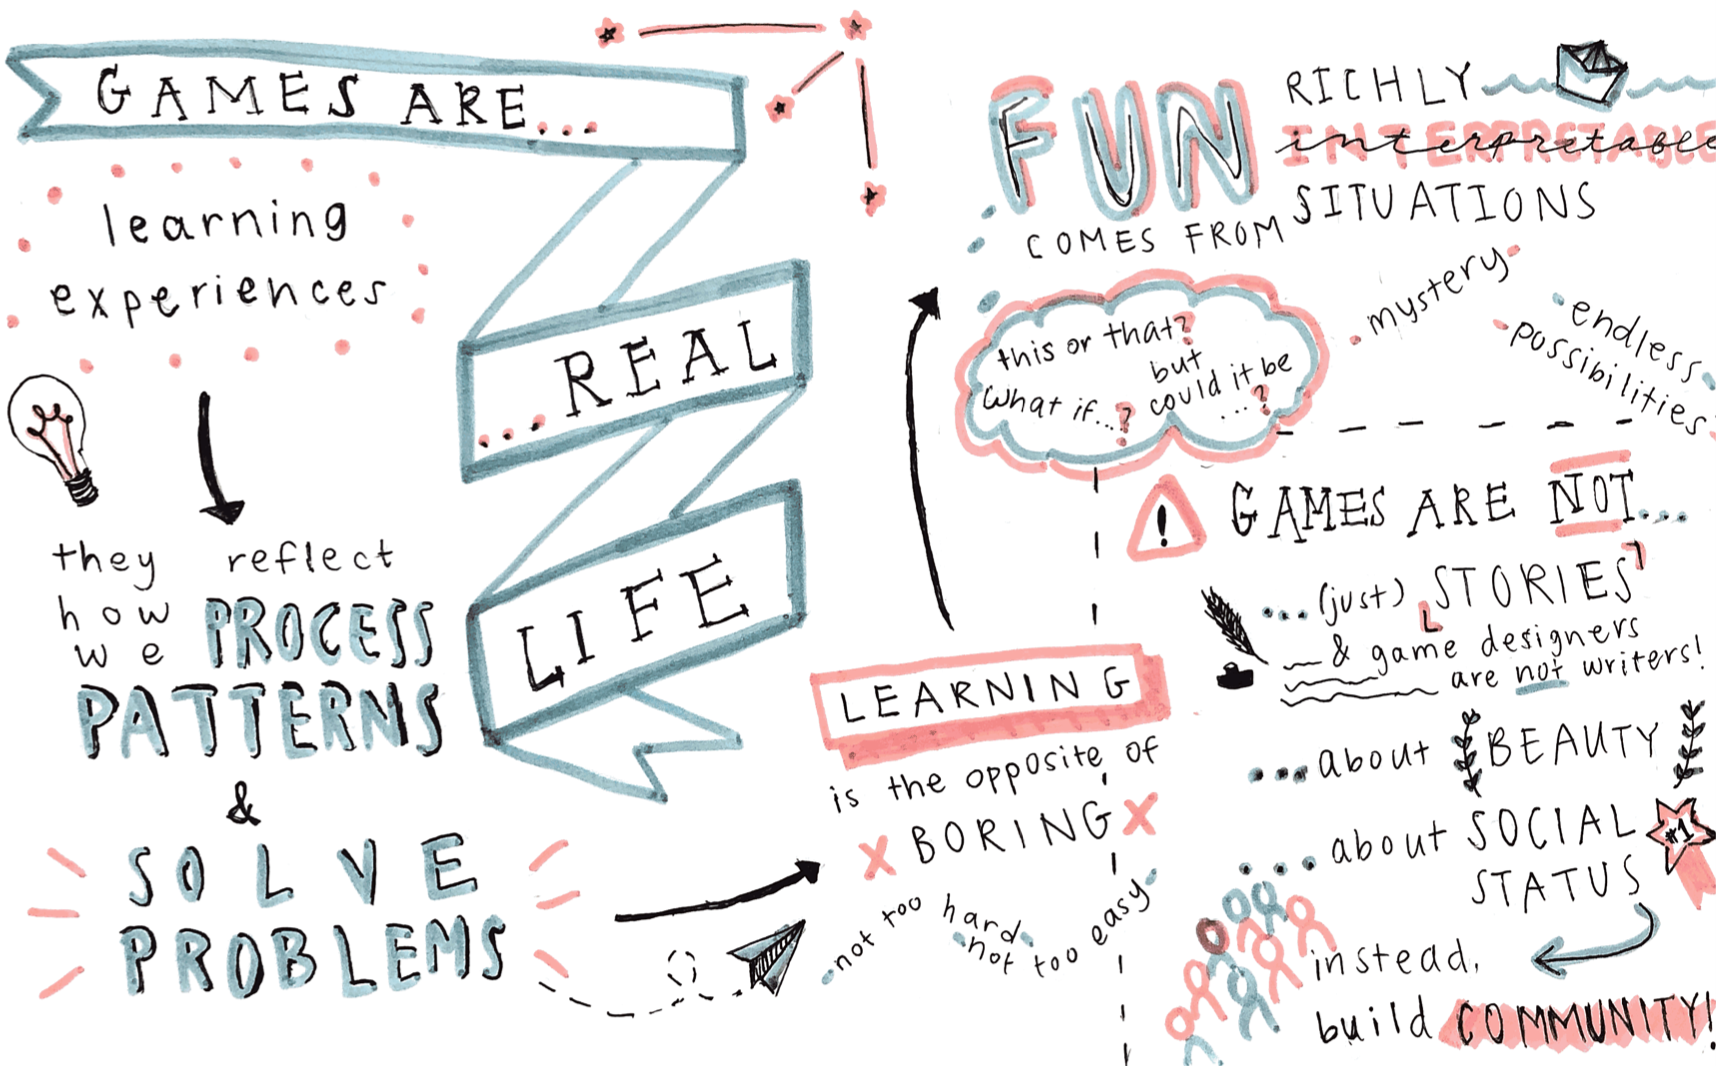 GAMES ARE...
learning
experiences
they reflect
how
we PROCESS
PATTERNS
&
SOLVE
PROBLEMS
...REAL
LIFE
LEARNING
is the opposite of
X BORING X
not too hard, not too easy
FUN
COMES FROM
RICHLY
INTERPRETABLE
SITUATIONS
this or that?
but
What if...? could it be
...?
mystery
endless
possibilities
! GAMES ARE NOT...
...(just) STORIES
& game designers
are not writers!
...about BEAUTY
...about SOCIAL
STATUS
#1
instead,
build COMMUNITY!